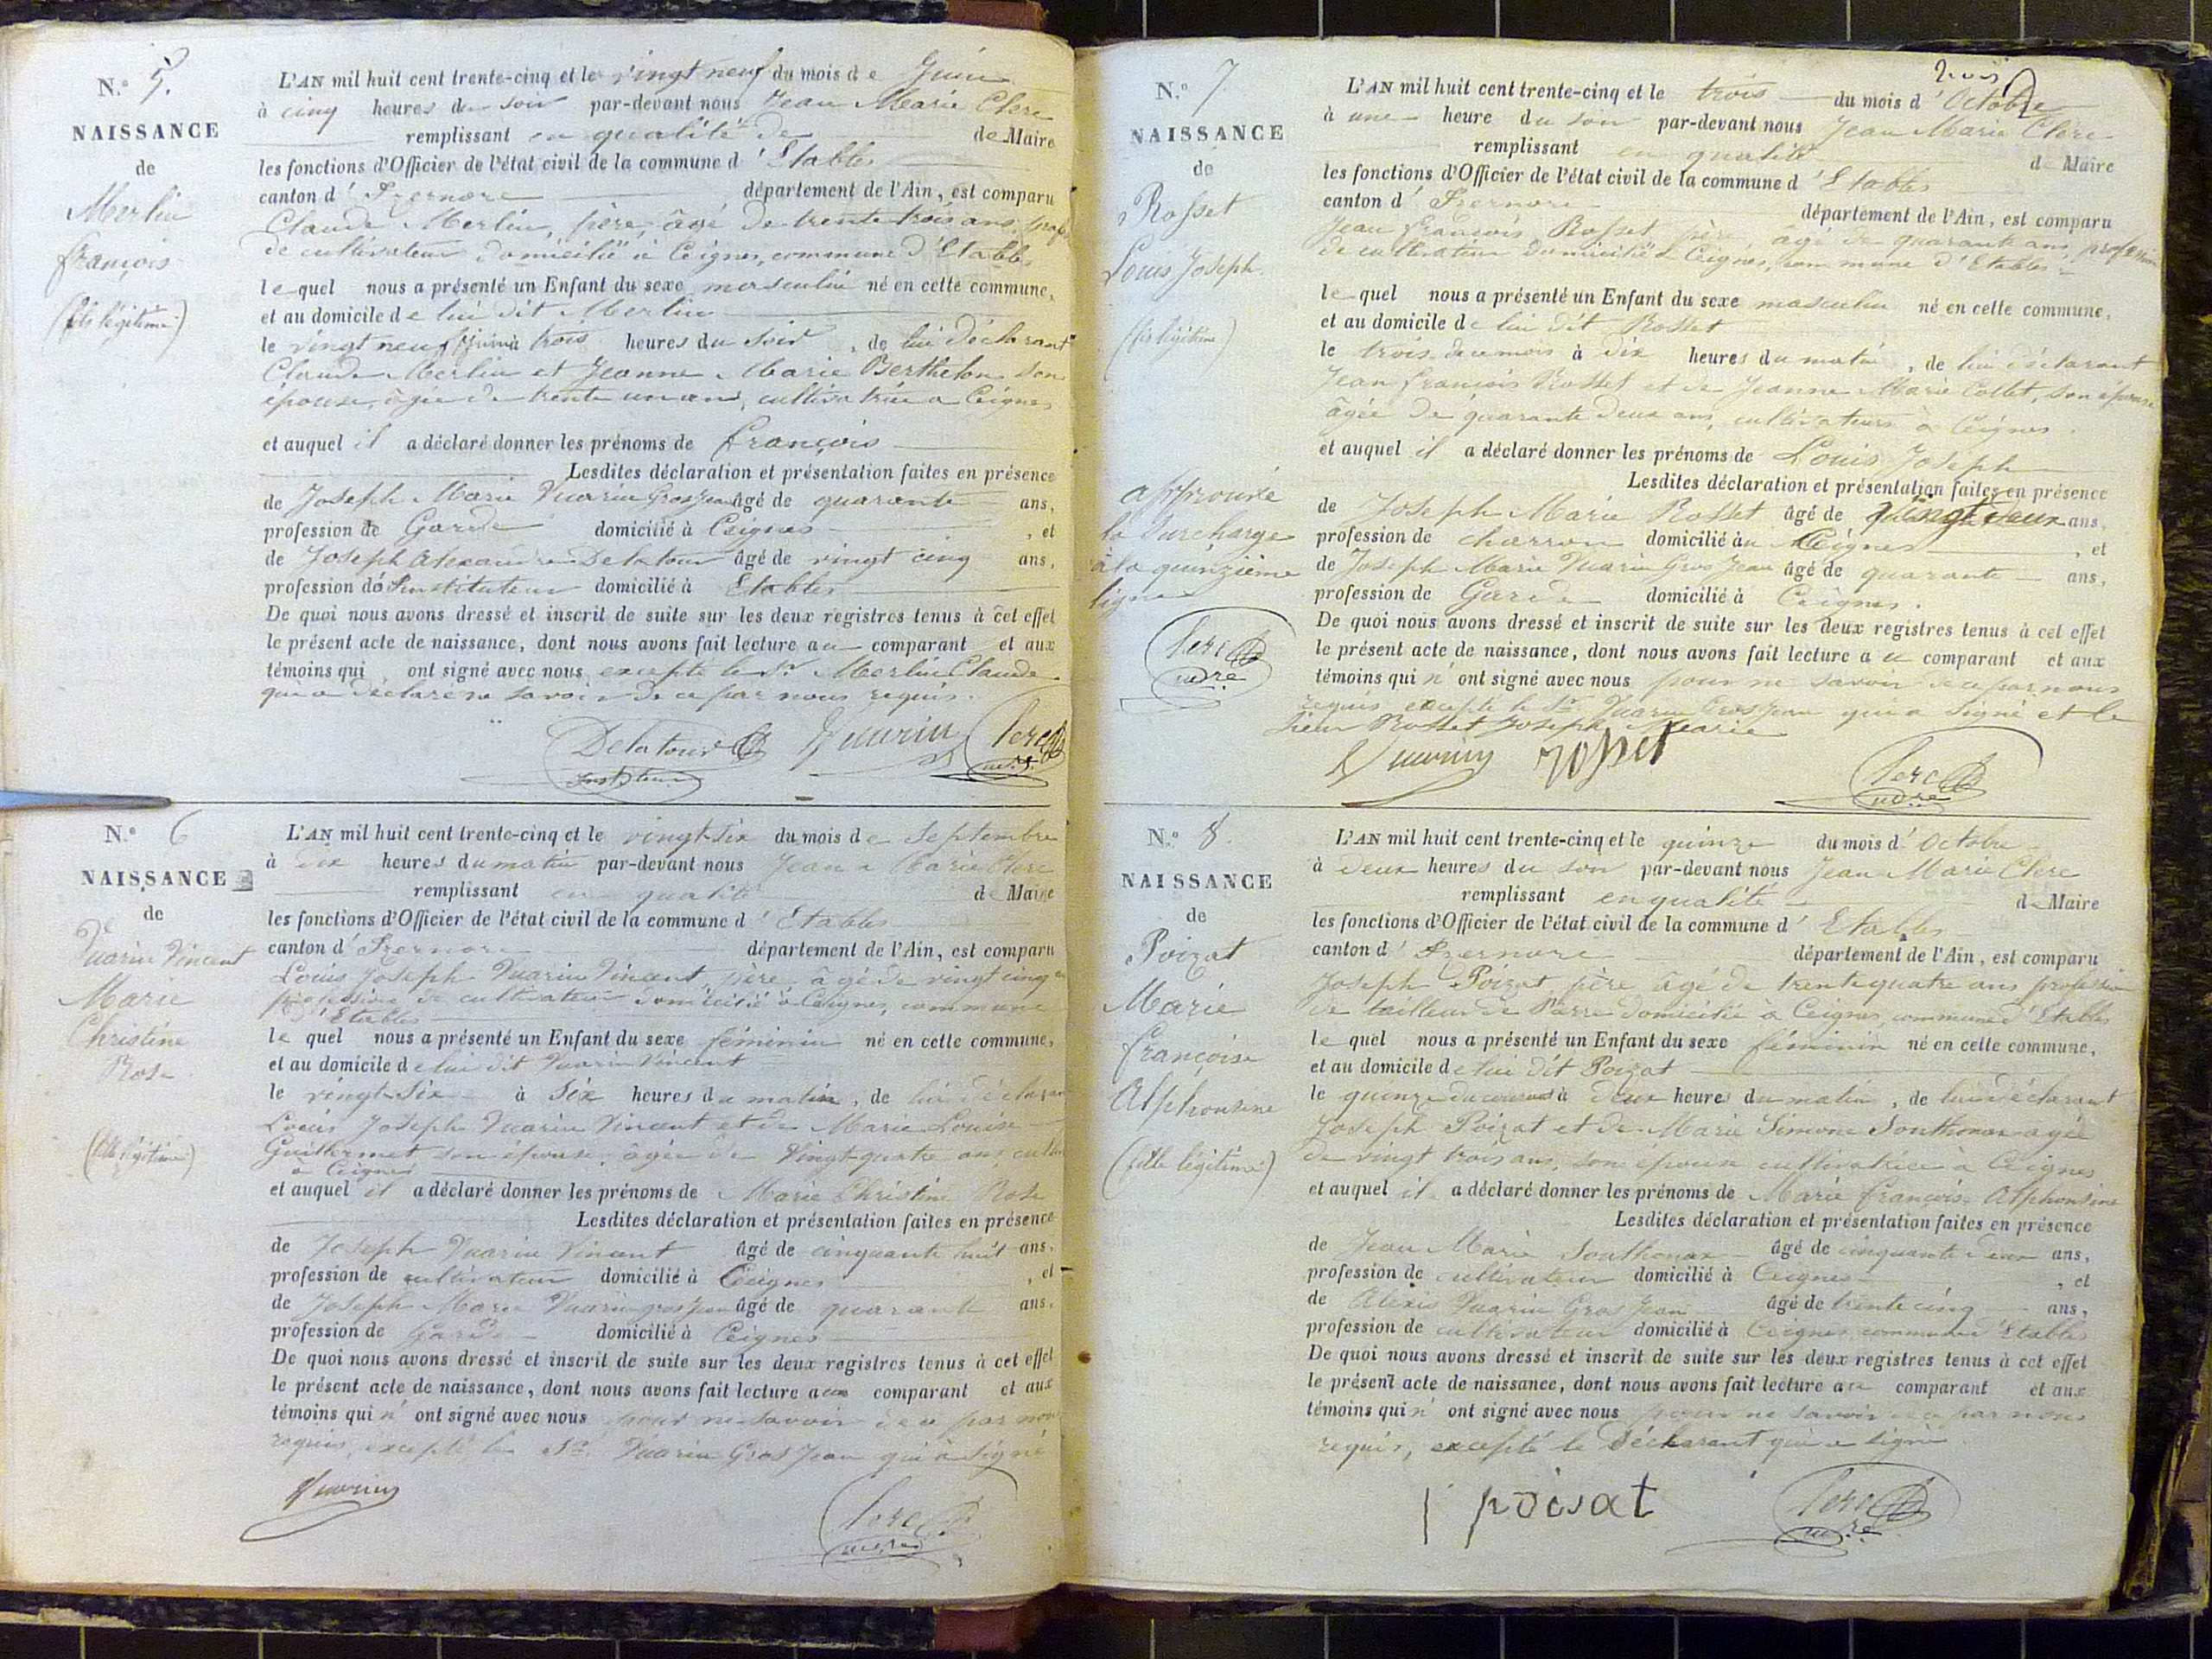 N.° 5.
NAISSANCE
de
Merlin
françois
(fils légitime)
L'AN mil huit cent trente-cinq et le vingt neuf du mois de Juin
à cinq heures du soir par-devant nous Jean Marie Clerc
remplissant en qualité de de Maire
les fonctions d'Officier de l'état civil de la commune d'Etables
canton d'Izernore département de l'Ain, est comparu
Claude Merlin, père, âgé de trente trois ans, prof
de cultivateur domicilié à Ceignes, commune d'Etables
lequel nous a présenté un Enfant du sexe masculin né en cette commune,
et au domicile de lui dit Merlin
le vingt neuf juin à trois heures du soir, de lui déclarant
Claude Merlin et Jeanne Marie Berthelon son
épouse, âgée de trente un ans, cultivatrice a Ceignes
et auquel il a déclaré donner les prénoms de françois
Lesdites déclaration et présentation faites en présence
de Joseph Marie Vuarin Gros Jean âgé de quarante ans,
profession de Garde domicilié à Ceignes, et
de Joseph Alexandre Delatour âgé de vingt cinq ans,
profession d'Instituteur domicilié à Etables
De quoi nous avons dressé et inscrit de suite sur les deux registres tenus à cet effet
le présent acte de naissance, dont nous avons fait lecture au comparant et aux
témoins qui ont signé avec nous excepté le Sr Merlin Claude
qui a déclaré ne savoir de ce par nous requis.
Delatour Vuarin Clerc
Instituteur maire
N.° 6
NAISSANCE
de
Vuarin Vincent
Marie
Christine
Rose
(fille légitime)
L'AN mil huit cent trente-cinq et le vingt-six du mois de Septembre
à dix heures du matin par-devant nous Jean Marie Clerc
remplissant en qualité de Maire
les fonctions d'Officier de l'état civil de la commune d'Etables
canton d'Izernore département de l'Ain, est comparu
Louis Joseph Vuarin Vincent, père, âgé de vingt cinq
profession de cultivateur domicilié à Ceignes, commune
d'Etables
lequel nous a présenté un Enfant du sexe féminin né en cette commune,
et au domicile de lui dit Vuarin Vincent
le vingt-six à six heures du matin, de lui déclarant
Louis Joseph Vuarin Vincent et de Marie Louise
Guillermet son épouse, âgée de vingt quatre ans, cultiv
à Ceignes
et auquel il a déclaré donner les prénoms de Marie Christine Rose
Lesdites déclaration et présentation faites en présence
de Joseph Vuarin Vincent âgé de cinquante huit ans,
profession de cultivateur domicilié à Ceignes, et
de Joseph Marie Vuarin gros jean âgé de quarante ans,
profession de Garde domicilié à Ceignes
De quoi nous avons dressé et inscrit de suite sur les deux registres tenus à cet effet
le présent acte de naissance, dont nous avons fait lecture au comparant et aux
témoins qui n'ont signé avec nous pour ne savoir de ce par nous
requis, excepté le Sr Vuarin Gros Jean qui a signé
Vuarin
Clerc
maire
N.° 7
NAISSANCE
de
Rosset
Louis Joseph.
(fils légitime)
approuvé
la surcharge
à la quinzième
ligne
Clerc
maire
L'AN mil huit cent trente-cinq et le trois du mois d'Octobre
à une heure du soir par-devant nous Jean Marie Clerc
remplissant en qualité de Maire
les fonctions d'Officier de l'état civil de la commune d'Etables
canton d'Izernore département de l'Ain, est comparu
Jean françois Rosset, père, âgé de quarante ans, profession
de cultivateur domicilié à Ceignes, commune d'Etables
lequel nous a présenté un Enfant du sexe masculin né en cette commune,
et au domicile de lui dit Rosset
le trois de ce mois à dix heures du matin, de lui déclarant
Jean françois Rosset et de Jeanne Marie Collet, son épouse
âgée de quarante deux ans, cultivateurs à Ceignes.
et auquel il a déclaré donner les prénoms de Louis Joseph
Lesdites déclaration et présentation faites en présence
de Joseph Marie Rosset âgé de vingt deux ans,
profession de charron domicilié à Ceignes, et
de Joseph Marie Vuarin Gros Jean âgé de quarante ans,
profession de Garde domicilié à Ceignes.
De quoi nous avons dressé et inscrit de suite sur les deux registres tenus à cet effet
le présent acte de naissance, dont nous avons fait lecture au comparant et aux
témoins qui n'ont signé avec nous pour ne savoir de ce par nous
requis excepté le Sr Vuarin Gros Jean qui a signé et le
sieur Rosset Joseph Marie
Vuarin rosset Clerc
maire
N.° 8.
NAISSANCE
de
Poizat
Marie
françoise
Alphonsine
(fille légitime)
L'AN mil huit cent trente-cinq et le quinze du mois d'Octobre
à deux heures du soir par-devant nous Jean Marie Clerc
remplissant en qualité de Maire
les fonctions d'Officier de l'état civil de la commune d'Etables
canton d'Izernore département de l'Ain, est comparu
Joseph Poizat, père âgé de trente quatre ans profession
de tailleur de Pierre domicilié à Ceignes, commune d'Etables
lequel nous a présenté un Enfant du sexe féminin né en cette commune,
et au domicile de lui dit Poizat
le quinze du courant à deux heures du matin, de lui déclarant
Joseph Poizat et de Marie Simone Southonax agée
de vingt trois ans, son épouse cultivatrice à Ceignes
et auquel il a déclaré donner les prénoms de Marie françoise Alphonsine
Lesdites déclaration et présentation faites en présence
de Jean Marie Southonax âgé de cinquante deux ans,
profession de cultivateur domicilié à Ceignes, et
de Alexis Vuarin Gros Jean âgé de trente cinq ans,
profession de cultivateur domicilié à Ceignes, commune d'Etables
De quoi nous avons dressé et inscrit de suite sur les deux registres tenus à cet effet
le présent acte de naissance, dont nous avons fait lecture au comparant et aux
témoins qui n'ont signé avec nous pour ne savoir de ce par nous
requis, excepté le Déclarant qui a signé
j poisat Clerc
maire